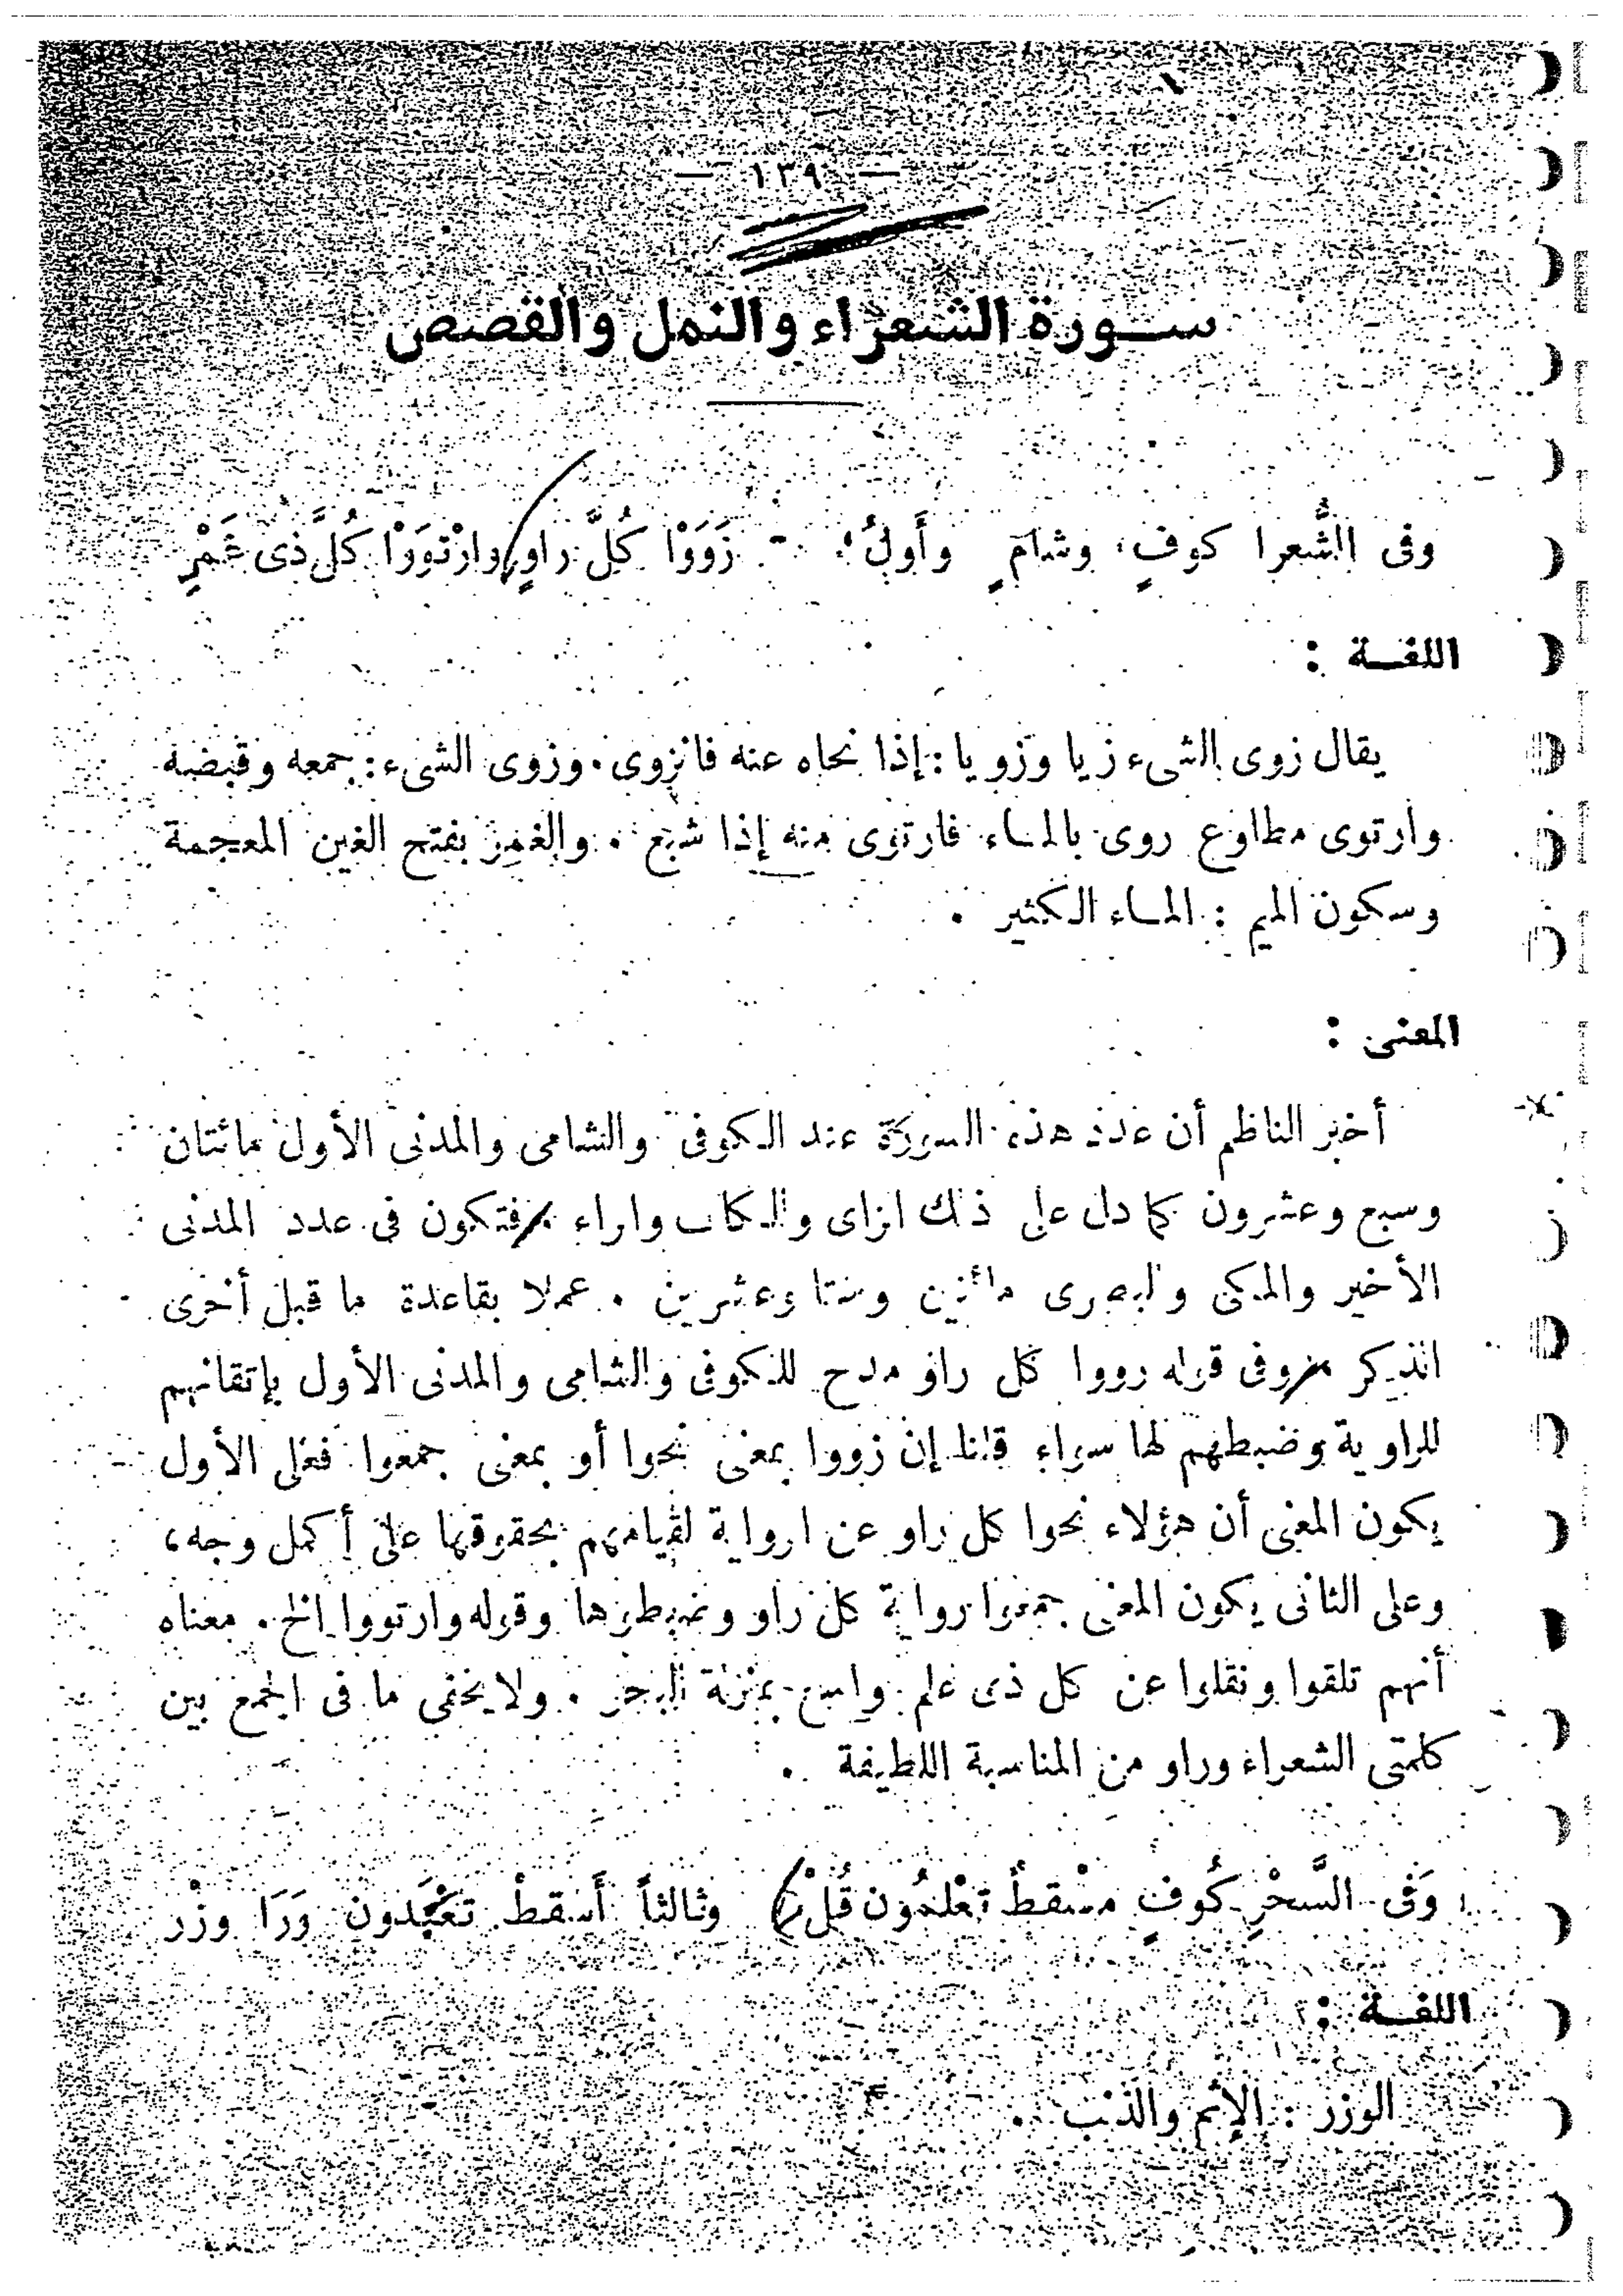 — ١٣٩ —
ســورة الشعراء والنمل والقصص
وفى الشُّعرا كوفٍ وشامٍ وأولُ زَوَوْا كُلَّ راوٍ وارْتوَوْا كُلَّ ذى غَمْرِ
اللغــة :
يقال زوى الشىء زيا وزويا : إذا نحاه عنه فانزوى . وزوى الشىء : جمعه وقبضه
وارتوى مطاوع روى بالماء فارتوى منه إذا شبع . والغمر بفتح الغين المعجمة
وسكون الميم : الماء الكثير .
المعنى :
أخبر الناظم أن عدد هذه السورة عند الكوفى والشامى والمدنى الأول مائتان
وسبع وعشرون كما دل على ذلك الزاى والكاف والراء فتكون فى عدد المدنى
الأخير والمكى والبصرى مائتين وستا وعشرين . عملا بقاعدة ما قبل أخرى
الذكر وفى قوله زووا كل راو مدح للكوفى والشامى والمدنى الأول بإتقانهم
للراوية وضبطهم لها سواء قلنا إن زووا بمعنى نحوا أو بمعنى جمعوا فعلى الأول
يكون المعنى أن هؤلاء نحوا كل راو عن الرواية لقيامهم بحقوقها على أكمل وجه،
وعلى الثانى يكون المعنى جمعوا رواية كل راو وضبطوها وقوله وارتووا الخ . معناه
أنهم تلقوا ونقلوا عن كل ذى علم واسع بمنزلة البحر . ولا يخفى ما فى الجمع بين
كلمتى الشعراء وراو من المناسبة اللطيفة .
وَفى السَّحْرِ كُوفٍ مسْقطٌ تعْلمُون قُلْ وثالثاً أَسقطْ تعْبُدون وَرَا وزْر
اللغــة :
الوزر : الإثم والذنب .